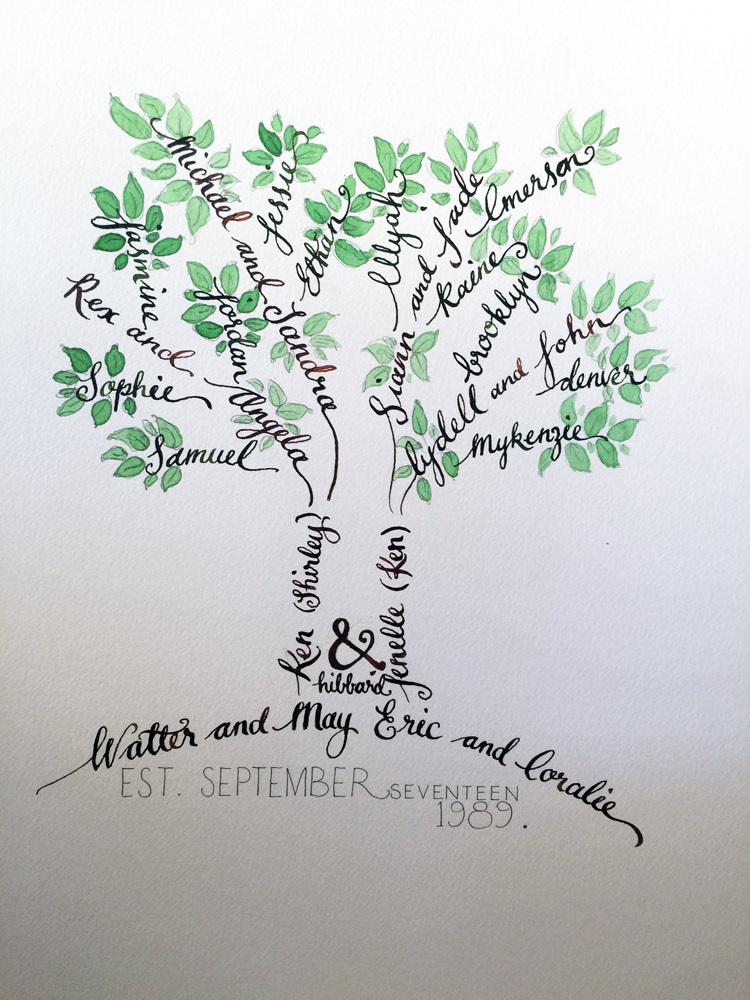 Michael and Sandra
Jessie
Ethan
Jasmine
Jordan
Rex and Angela
Sophie
Samuel
Elijah
Liann and Jade
Emerson
Raine
brooklyn
lydell and John
denver
Mykenzie
Ken (Shirley)
&
Jenelle (Ken)
hibbard
Walter and May Eric and Coralie
EST. SEPTEMBER SEVENTEEN
1989.